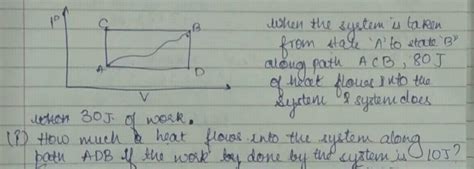 P
C
B
A
D
V
When the system is taken
from state 'A' to state 'B'
along path ACB, 80J
of heat flows into the
system & system does
30J of work.
(P) How much heat flows into the system along
path ADB if the work done by the system is 10J?